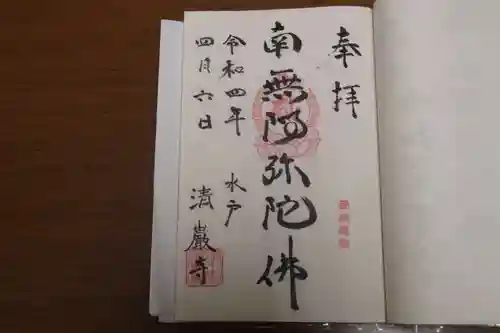 奉拝
南無阿弥陀佛
令和四年
四月六日
水戸
清巖寺